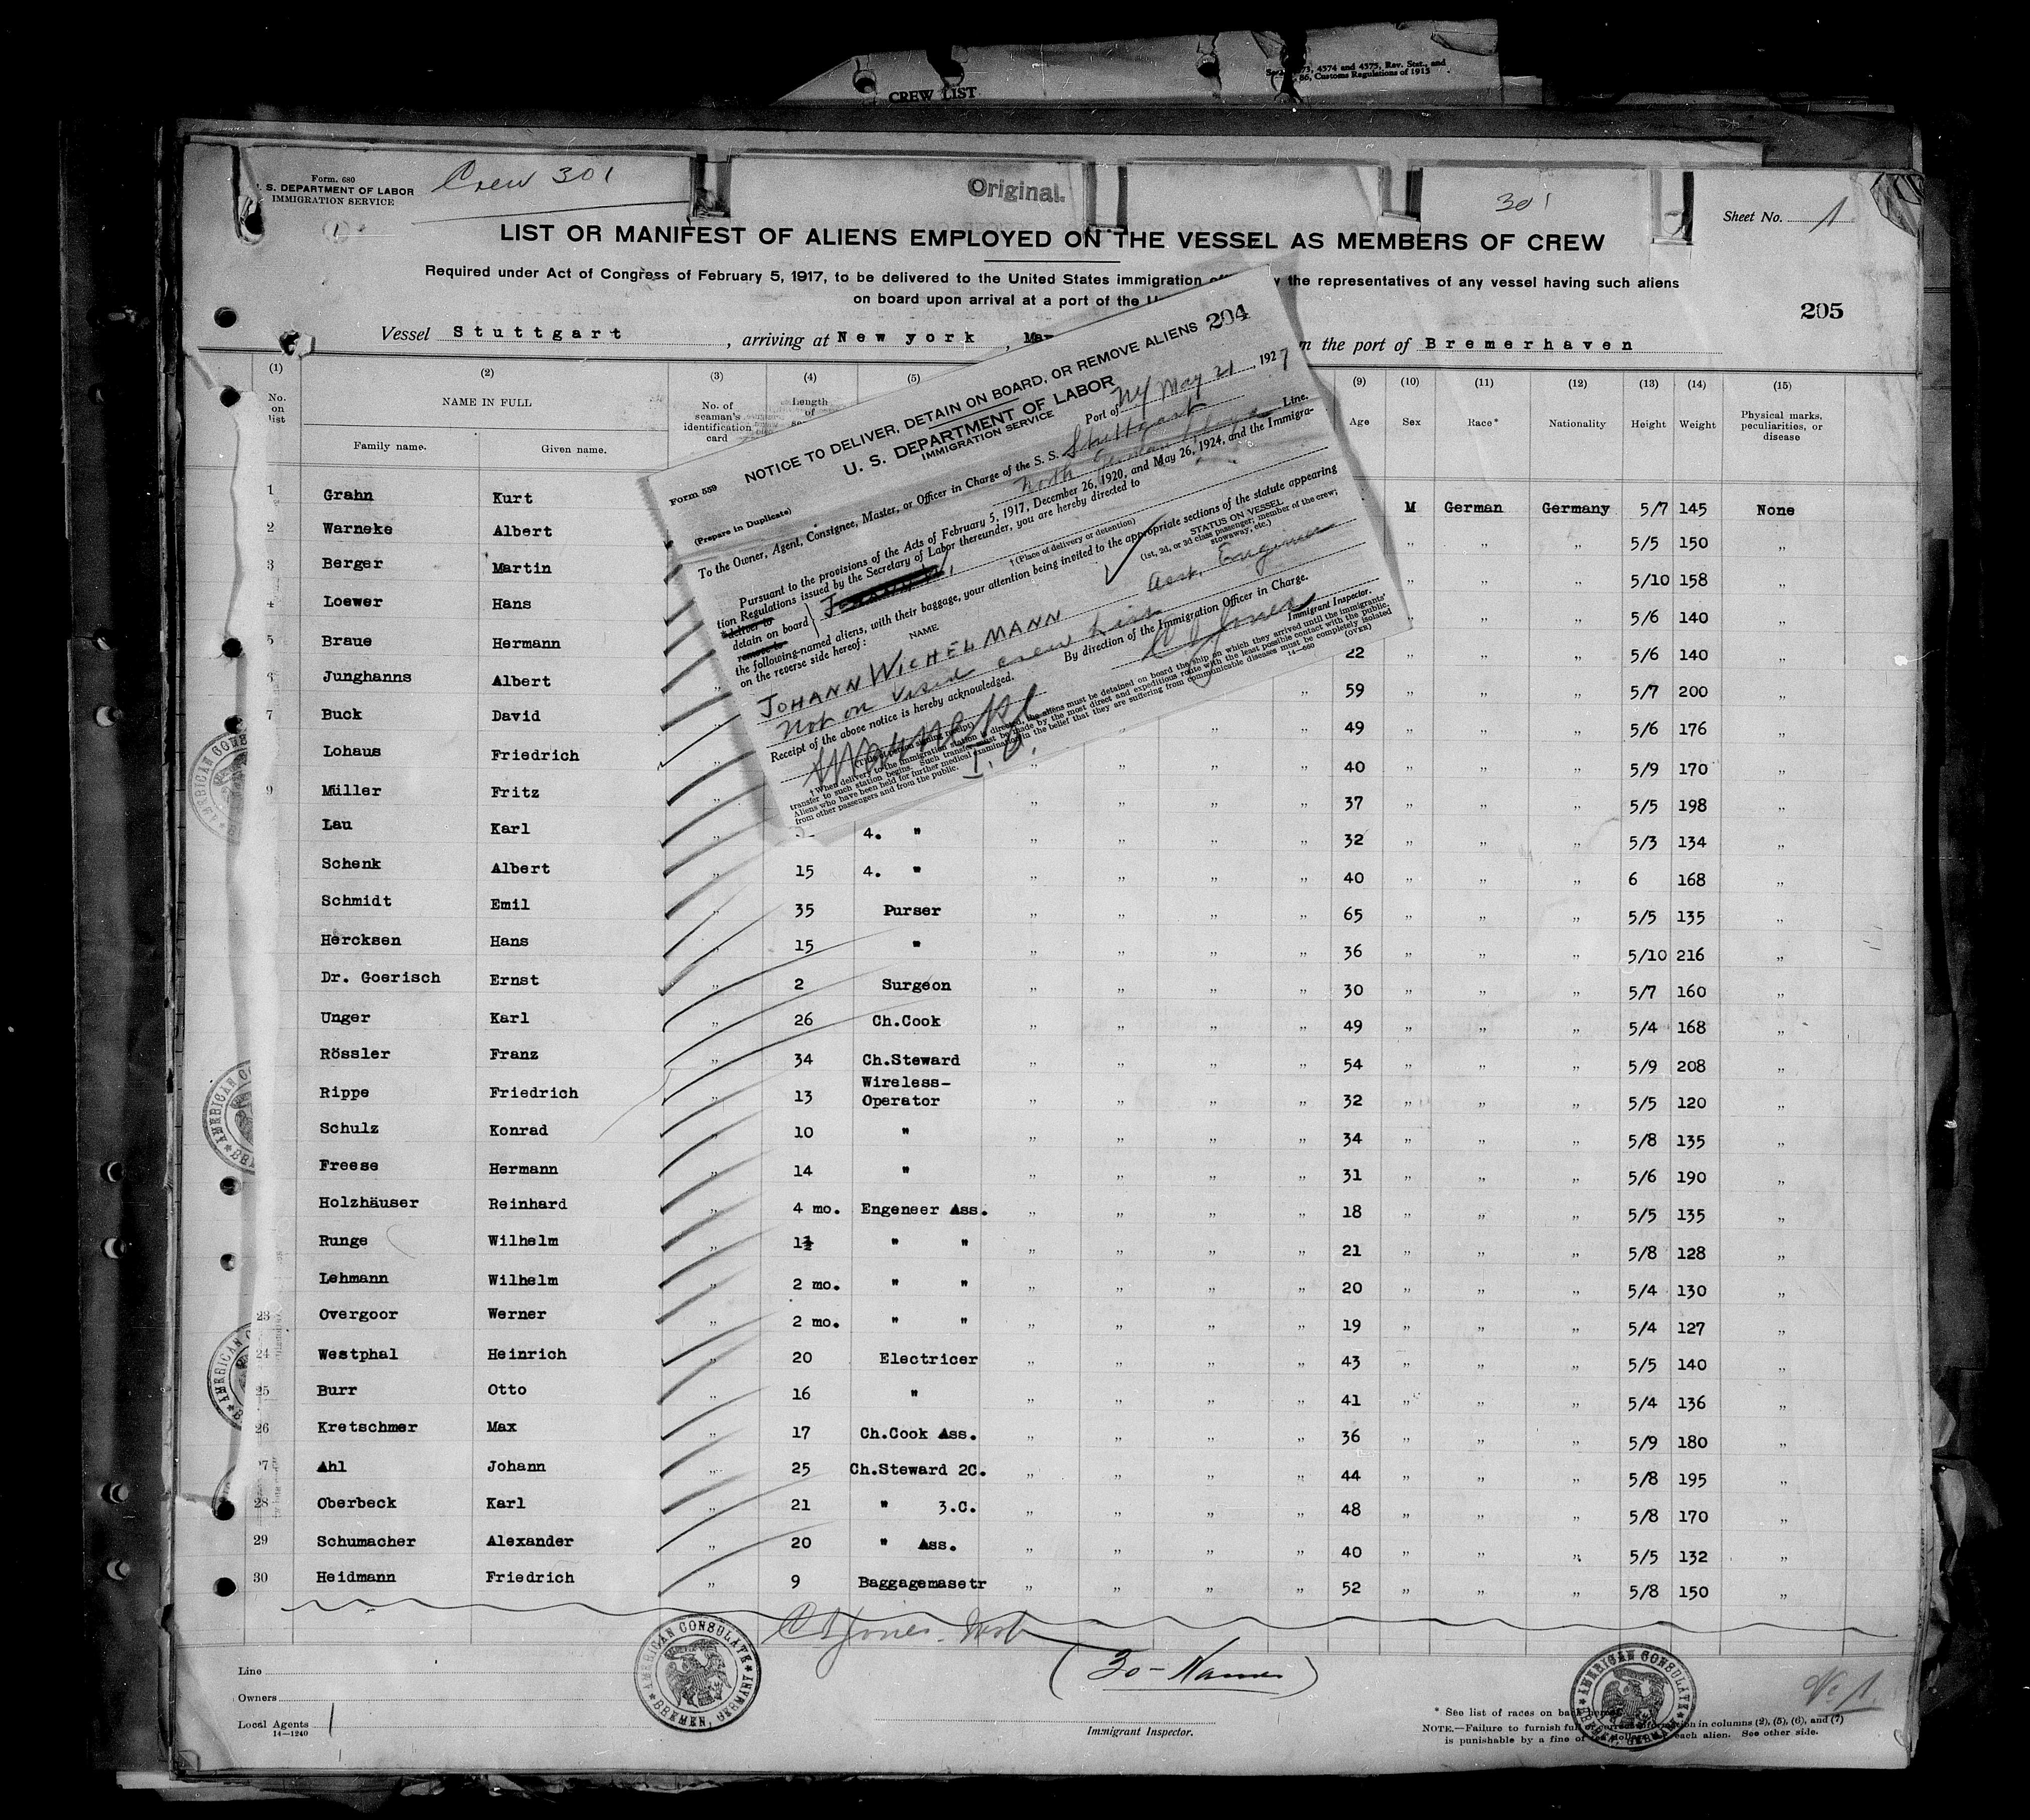 CREW LIST
4574 and 4575, Rev. Stat., and
86, Customs Regulations of 1915
Form. 680
U. S. DEPARTMENT OF LABOR
IMMIGRATION SERVICE
Crew 301
Original.
301
Sheet No. 1
LIST OR MANIFEST OF ALIENS EMPLOYED ON THE VESSEL AS MEMBERS OF CREW
Required under Act of Congress of February 5, 1917, to be delivered to the United States immigration the representatives of any vessel having such aliens
on board upon arrival at a port of the
205
Vessel Stuttgart, arriving at New york, the port of Bremerhaven
(1) (2) (3) (4) (5) (9) (10) (11) (12) (13) (14) (15)
No. on list NAME IN FULL Family name. Given name. No. of seaman's identification card Length of Age Sex Race* Nationality Height Weight Physical marks, peculiarities, or disease
Form 559
(Prepare in Duplicate)
NOTICE TO DELIVER, DETAIN ON BOARD, OR REMOVE ALIENS 204
U. S. DEPARTMENT OF LABOR
IMMIGRATION SERVICE
Port of NY May 21, 1927
To the Owner, Agent, Consignee, Master, or Officer in Charge of the S. S. Stuttgart
North German Lloyd Line.
Pursuant to the provisions of the Acts of February 5, 1917, December 26, 1920, and May 26, 1924, and the Immigra-
tion Regulations issued by the Secretary of Labor thereunder, you are hereby directed to
*deliver to
detain on board
remove to
†(Place of delivery or detention)
the following-named aliens, with their baggage, your attention being invited to the appropriate sections of the statute appearing
on the reverse side hereof:
NAME
STATUS ON VESSEL
(1st, 2d, or 3d class passenger; member of the crew;
stowaway, etc.)
JOHANN WICHELMANN Asst. Engineer
Not on Visaed crew List
By direction of the Immigration Officer in Charge.
Receipt of the above notice is hereby acknowledged.
Immigrant Inspector.
†When delivery to the immigration station is directed, the aliens must be detained on board the ship on which they arrived until the immigrants'
transfer to such station begins. Such transfer must be made by the most direct and expeditious route with the least possible contact with the public.
Aliens who have been held for further medical examination in the belief that they are suffering from communicable diseases must be completely isolated
from other passengers and from the public.
14—660
(OVER)
1 Grahn Kurt M German Germany 5/7 145 None
2 Warneke Albert " " " 5/5 150 "
3 Berger Martin " " " 5/10 158 "
4 Loewer Hans " " " 5/6 140 "
5 Braue Hermann 22 " " " 5/6 140 "
6 Junghanns Albert " " 59 " " " 5/7 200 "
7 Buck David " " 49 " " " 5/6 176 "
Lohaus Friedrich " " 40 " " " 5/9 170 "
9 Müller Fritz " " 37 " " " 5/5 198 "
Lau Karl " 4. " " " " " 32 " " " 5/3 134 "
Schenk Albert " 15 4. " " " " " 40 " " " 6 168 "
Schmidt Emil " 35 Purser " " " " 65 " " " 5/5 135 "
Hercksen Hans " 15 " " " " " 36 " " " 5/10 216 "
Dr. Goerisch Ernst " 2 Surgeon " " " " 30 " " " 5/7 160 "
Unger Karl " 26 Ch.Cook " " " " 49 " " " 5/4 168 "
Rössler Franz " 34 Ch.Steward " " " " 54 " " " 5/9 208 "
Rippe Friedrich " 13 Wireless-Operator " " " " 32 " " " 5/5 120 "
Schulz Konrad " 10 " " " " " 34 " " " 5/8 135 "
Freese Hermann " 14 " " " " " 31 " " " 5/6 190 "
Holzhäuser Reinhard " 4 mo. Engeneer Ass. " " " " 18 " " " 5/5 135 "
Runge Wilhelm " 1½ " " " " " " 21 " " " 5/8 128 "
Lehmann Wilhelm " 2 mo. " " " " " " 20 " " " 5/4 130 "
23 Overgoor Werner " 2 mo. " " " " " " 19 " " " 5/4 127 "
24 Westphal Heinrich " 20 Electricer " " " " 43 " " " 5/5 140 "
25 Burr Otto " 16 " " " " " 41 " " " 5/4 136 "
26 Kretschmer Max " 17 Ch.Cook Ass. " " " " 36 " " " 5/9 180 "
27 Ahl Johann " 25 Ch.Steward 2C. " " " " 44 " " " 5/8 195 "
28 Oberbeck Karl " 21 " 3.C. " " " " 48 " " " 5/8 170 "
29 Schumacher Alexander " 20 " Ass. " " " " 40 " " " 5/5 132 "
30 Heidmann Friedrich " 9 Baggagemasetr " " " " 52 " " " 5/8 150 "
(30 - Names)
AMERICAN CONSULATE
BREMEN, GERMANY
AMERICAN CONSULATE
BREMEN, GERMANY
No 1.
Line
Owners
Local Agents
14—1240
Immigrant Inspector.
* See list of races on back hereof.
NOTE.—Failure to furnish full or correct information in columns (2), (5), (6), and (7)
is punishable by a fine of ten dollars for each alien. See other side.